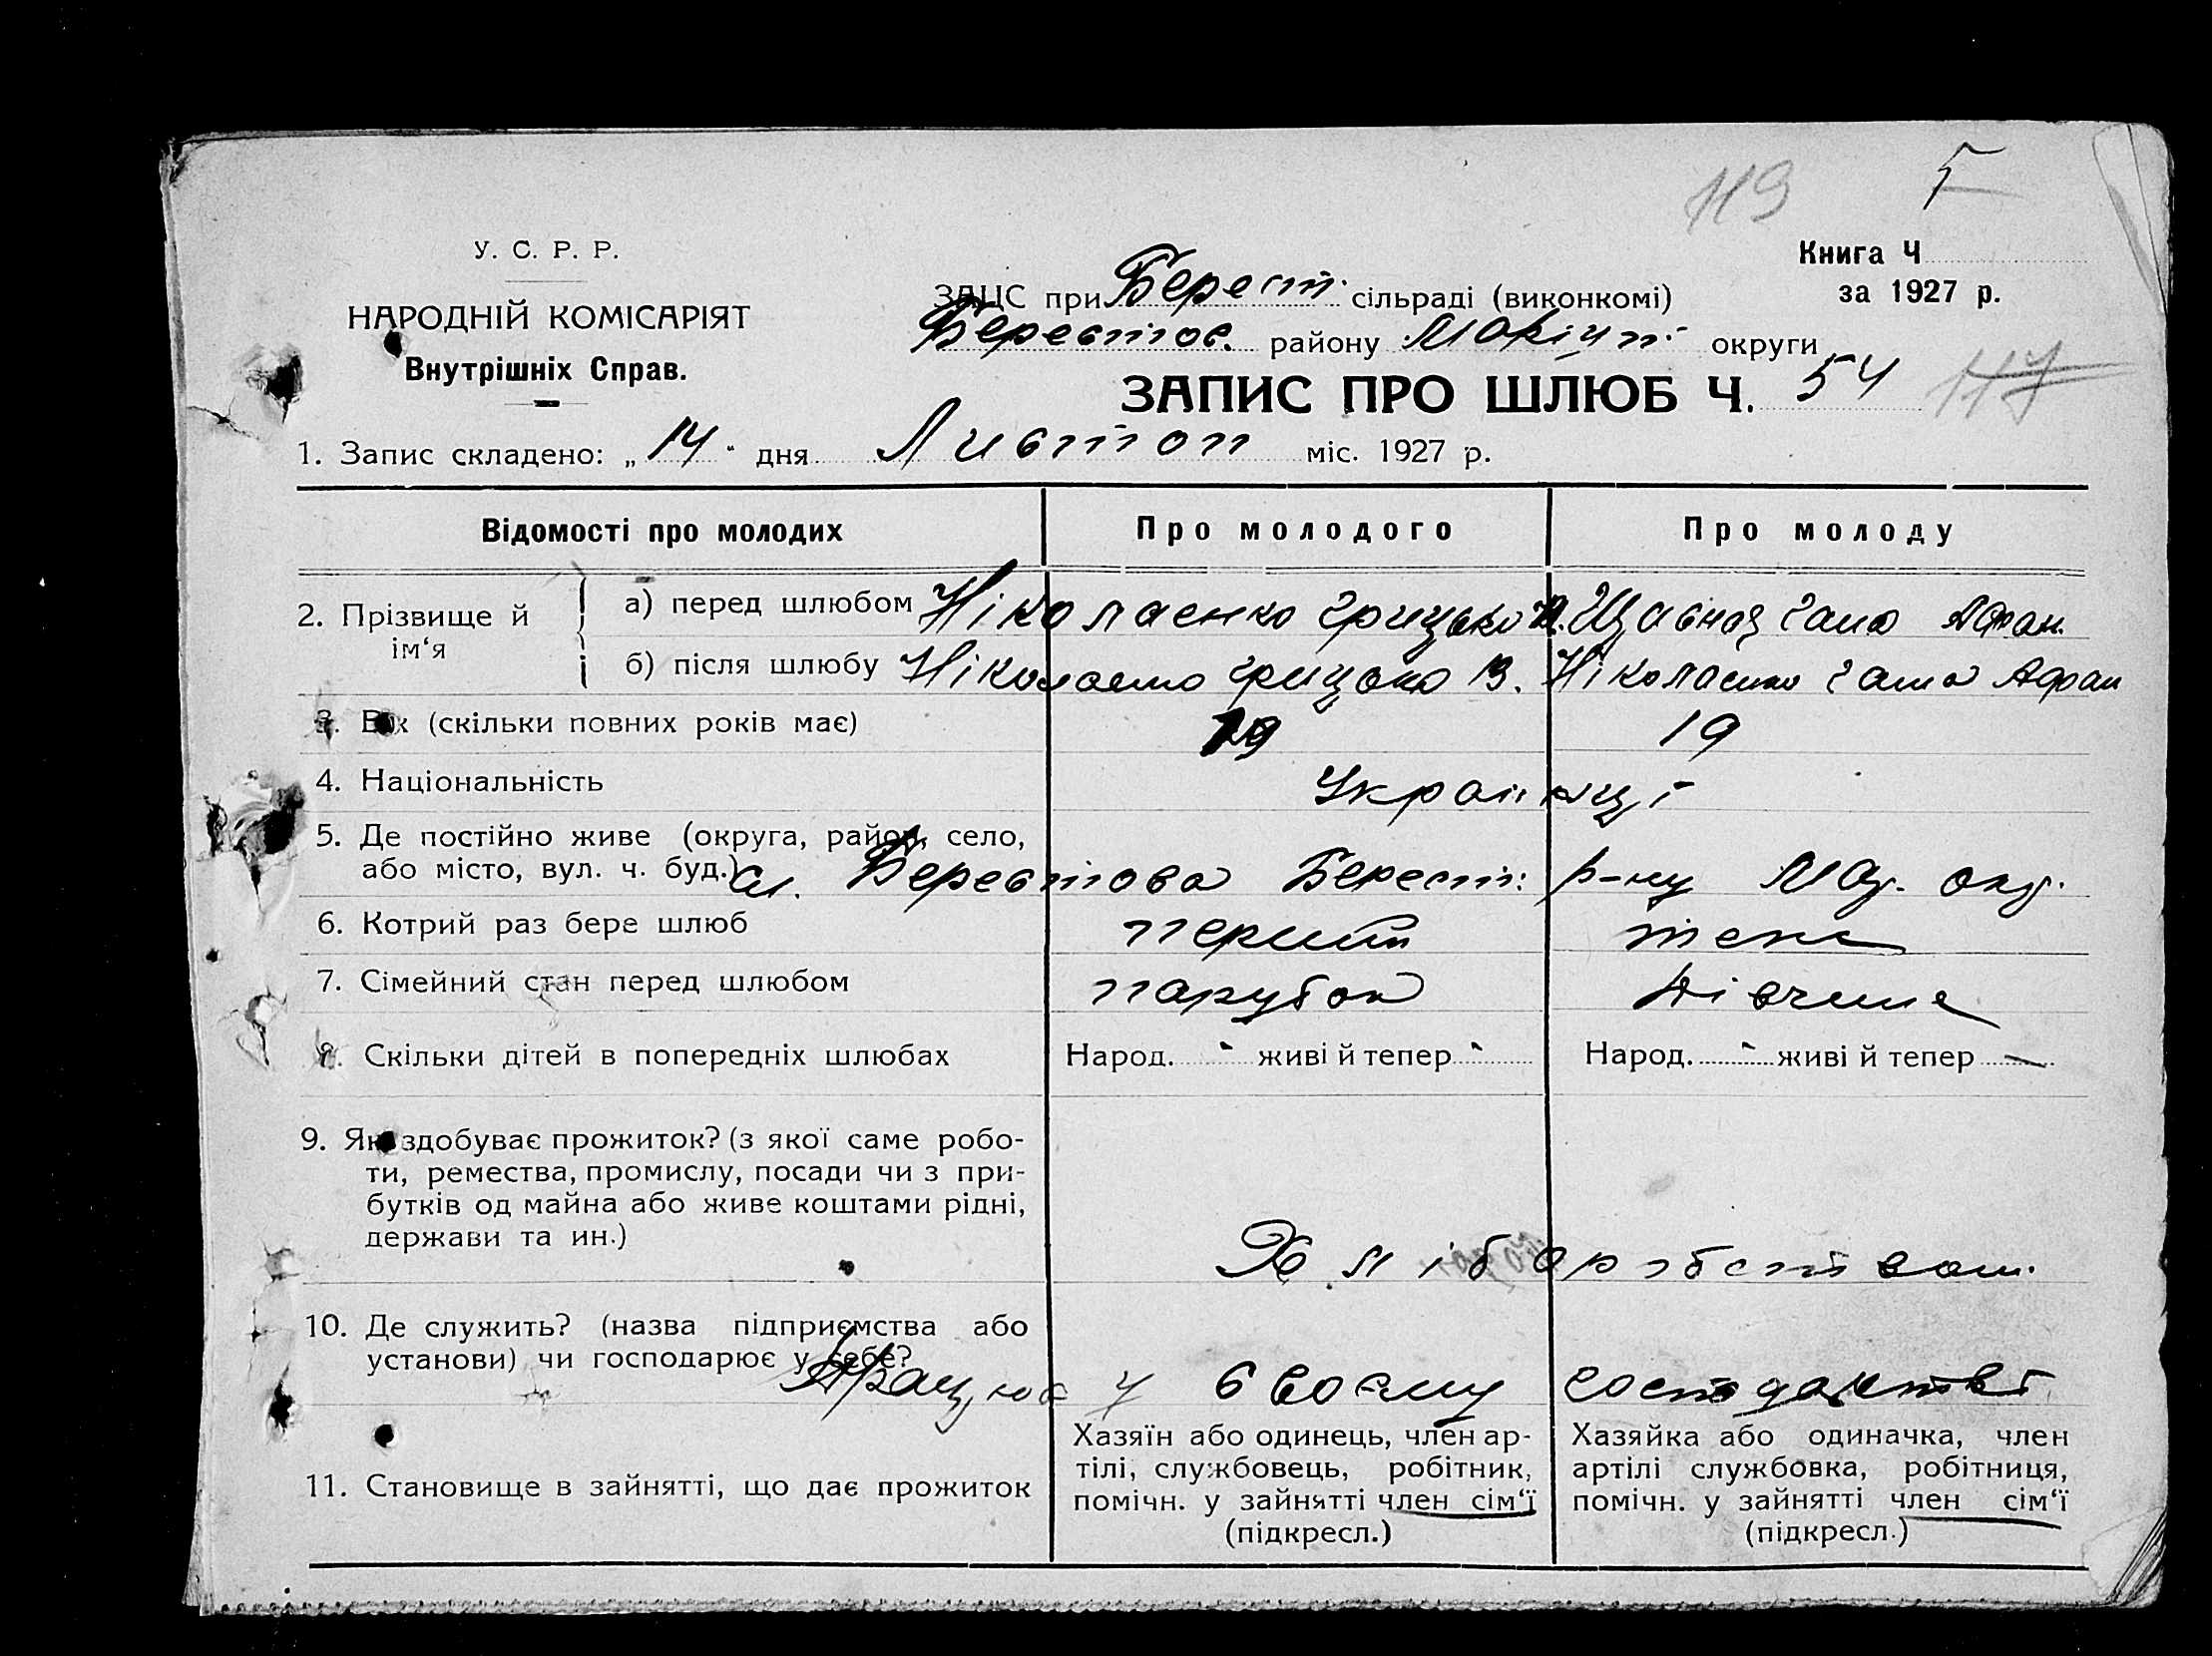 119 5
У. С. Р. Р.
НАРОДНІЙ КОМІСАРІЯТ
Внутрішніх Справ.
Книга Ч
за 1927 р.
ЗАЦС при Берест. сільраді (виконкомі)
Берестов. району Маріуп. округи
ЗАПИС ПРО ШЛЮБ Ч. 54 117
1. Запис складено: „14" дня Листоп міс. 1927 р.
Відомості про молодих Про молодого Про молоду
2. Прізвище й ім'я
а) перед шлюбом Ніколаєнко Грицько В. Щавна Ганна Афан.
б) після шлюбу Ніколаєнко Грицько В. Ніколаєнко Ганна Афан
3. Вік (скільки повних років має) 19 19
4. Національність Українці
5. Де постійно живе (округа, район, село,
або місто, вул. ч. буд.) Сл. Берестова Берест: р-ну Мар. окр.
6. Котрий раз бере шлюб перший теж
7. Сімейний стан перед шлюбом парубок дівчина
8. Скільки дітей в попередніх шлюбах Народ. - живі й тепер - Народ. - живі й тепер —
9. Як здобуває прожиток? (з якої саме робо-
ти, ремества, промислу, посади чи з при-
бутків од майна або живе коштами рідні,
держави та ин.)
Хліборобством.
10. Де служить? (назва підприємства або
установи) чи господарює у себе?
Працює у своєму господарстві
11. Становище в зайнятті, що дає прожиток
Хазяїн або одинець, член ар-
тілі, службовець, робітник,
помічн. у зайнятті член сім'ї
(підкресл.)
Хазяйка або одиначка, член
артілі службовка, робітниця,
помічн. у зайнятті член сім'ї
(підкресл.)